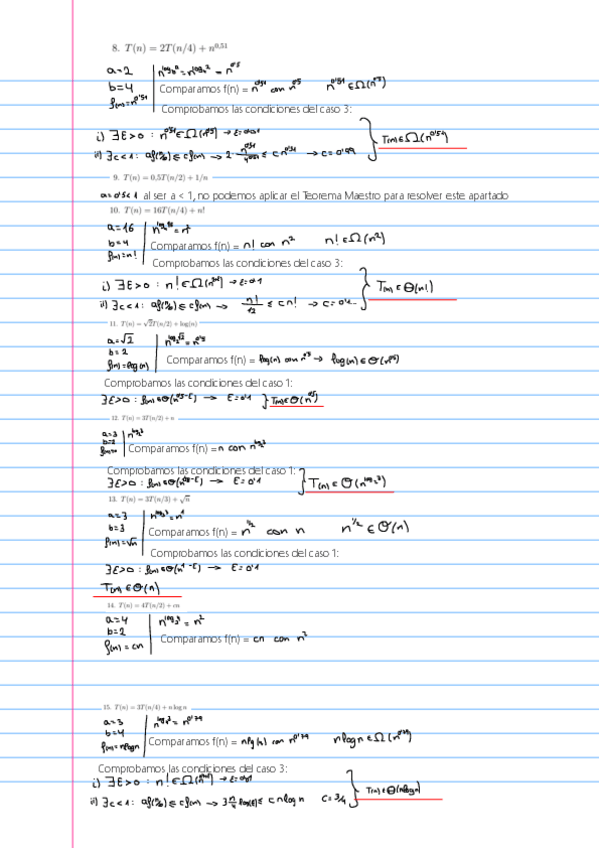 8. T(n) = 2T(n/4) + n^0,51
a=2
b=4
f(n)=n^0'51
Comparamos f(n) = n^0'51 con n^0'5    n^0'51 ∈ Ω(n^0'5)
Comprobamos las condiciones del caso 3:
i) ∃ε>0 : n^0'51 ∈ Ω(n^0'5) → ε=0'01
ii) ∃c<1 : af(n/b) ≤ cf(n) → 2 ≤ c n^0'51 → c=0'99
9. T(n) = 0,5T(n/2) + 1/n
a=0'5<1 al ser a < 1, no podemos aplicar el Teorema Maestro para resolver este apartado
10. T(n) = 16T(n/4) + n!
a=16
b=4
f(n)=n!
Comparamos f(n) = n! con n²    n! ∈ Ω(n²)
Comprobamos las condiciones del caso 3:
i) ∃ε>0 : n! ∈ → ε=0'1
T(n) ∈ Θ(n!)
ii) ∃c<1 : af(n/b) ≤ cf(n) → ≤ c n! →
11. T(n) = √2T(n/2) + log(n)
a=√2
b=2
f(n)=log(n)
Comparamos f(n) = log(n) con n^0'5 → log(n) ∈ O(n^0'5)
Comprobamos las condiciones del caso 1:
∃ε>0 : f(n) ∈ O(n^0'5-ε) → ε=0'1 } T(n) ∈ Θ(n^0'5)
12. T(n) = 3T(n/2) + n
a=3
b=2
Comparamos f(n) = n con
Comprobamos las condiciones del caso 1:
∃ε>0 : → ε=0'1
13. T(n) = 3T(n/3) + √n
a=3
b=3
f(n)=√n
Comparamos f(n) = n^1/2 con n    n^1/2 ∈ O(n)
Comprobamos las condiciones del caso 1:
∃ε>0 : f(n) ∈ O(n^1-ε) → ε=0'1
T(n) ∈ Θ(n)
14. T(n) = 4T(n/2) + cn
a=4
b=2
f(n)=cn
Comparamos f(n) = cn con n²
15. T(n) = 3T(n/4) + n log n
a=3
b=4
f(n)=nlogn
Comparamos f(n) = nlog(n) con n^0'79    nlogn ∈ Ω(n^0'79)
Comprobamos las condiciones del caso 3:
i) ∃ε>0 : n! ∈
T(n) ∈ Θ(nlogn)
ii) ∃c<1 : af(n/b) ≤ cf(n) → ≤ c nlogn    c=3/4